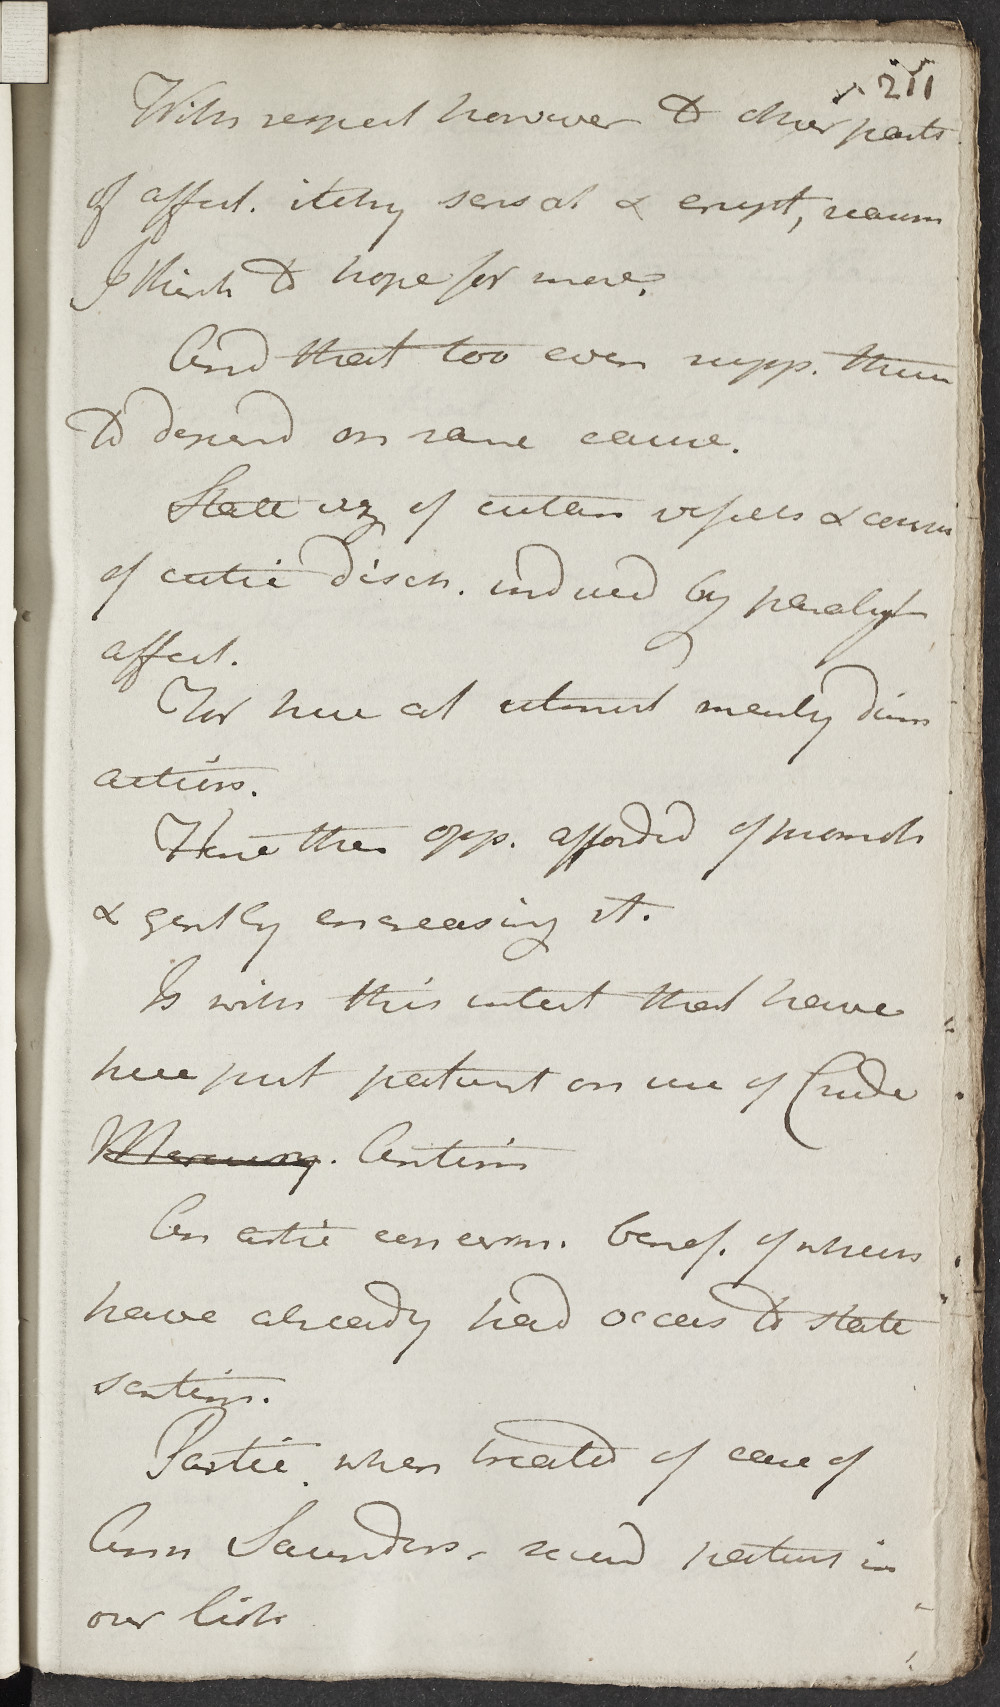 211
With respect however to other parts
of affect. itchy sensat & erupt, reason
I think to hope for more.
And that too even supp. them
to depend on same cause.
State viz of cutan vessels &
of cutic disch. induced by paralyt
affect.
For here at utmost merely dimin
action.
Here then opp. afforded of promot
& gently encreasing it.
Is with this intent that have
here put patient on use of Crude
Mercury. Antim
An artic concern. benef. of which
have already had occas to state
sentim.
Partic. when treated of case of
Ann Saunders - second patient in
our list